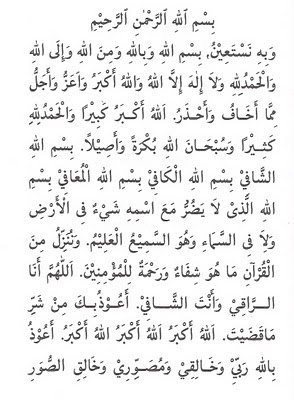 بِسْمِ اللهِ الرَّحْمٰنِ الرَّحِيْمِ
وَبِهِ نَسْتَعِيْنُ، بِسْمِ اللهِ وَبِاللهِ وَمِنَ اللهِ وَإِلَى اللهِ
وَالْحَمْدُلِلهِ وَلاَ إِلٰهَ إِلاَّ اللهُ وَاللهُ أَكْبَرُ وَأَعَزُّ وَأَجَلُّ
مِمَّا أَخَافُ وَأَحْذَرُ. اَللهُ أَكْبَرُ كَبِيْرًا وَالْحَمْدُلِلهِ
كَثِيْرًا وَسُبْحَانَ اللهِ بُكْرَةً وَأَصِيْلًا. بِسْمِ اللهِ
الشَّافِيْ بِسْمِ اللهِ الْكَافِيْ بِسْمِ اللهِ الْمُعَافِيْ بِسْمِ
اللهِ الَّذِىْ لَا يَضُرُّ مَعَ اسْمِهِ شَيْءٌ فِى الْأَرْضِ
وَلاَ فِى السَّمَاءِ وَهُوَ السَّمِيْعُ الْعَلِيْمُ. وَنُنَزِّلُ مِنَ
الْقُرْآنِ مَا هُوَ شِفَاءٌ وَرَحْمَةٌ لِلْمُؤْمِنِيْنَ. اَللّٰهُمَّ أَنَا
الـرَّاقِيْ وَأَنْتَ الشَّـافِيْ. أَعُـوْذُبِـكَ مِنْ شَرِّ
مَاقَضَيْتَ. اَللهُ أَكْبَرُ اَللهُ أَكْبَرُ اَللهُ أَكْبَرُ. أَعُوْذُ
بِاللهِ رَبِّيْ وَخَـالِقِيْ وَمُصَـوِّرِيْ وَخَالِقِ الصُّوَرِ